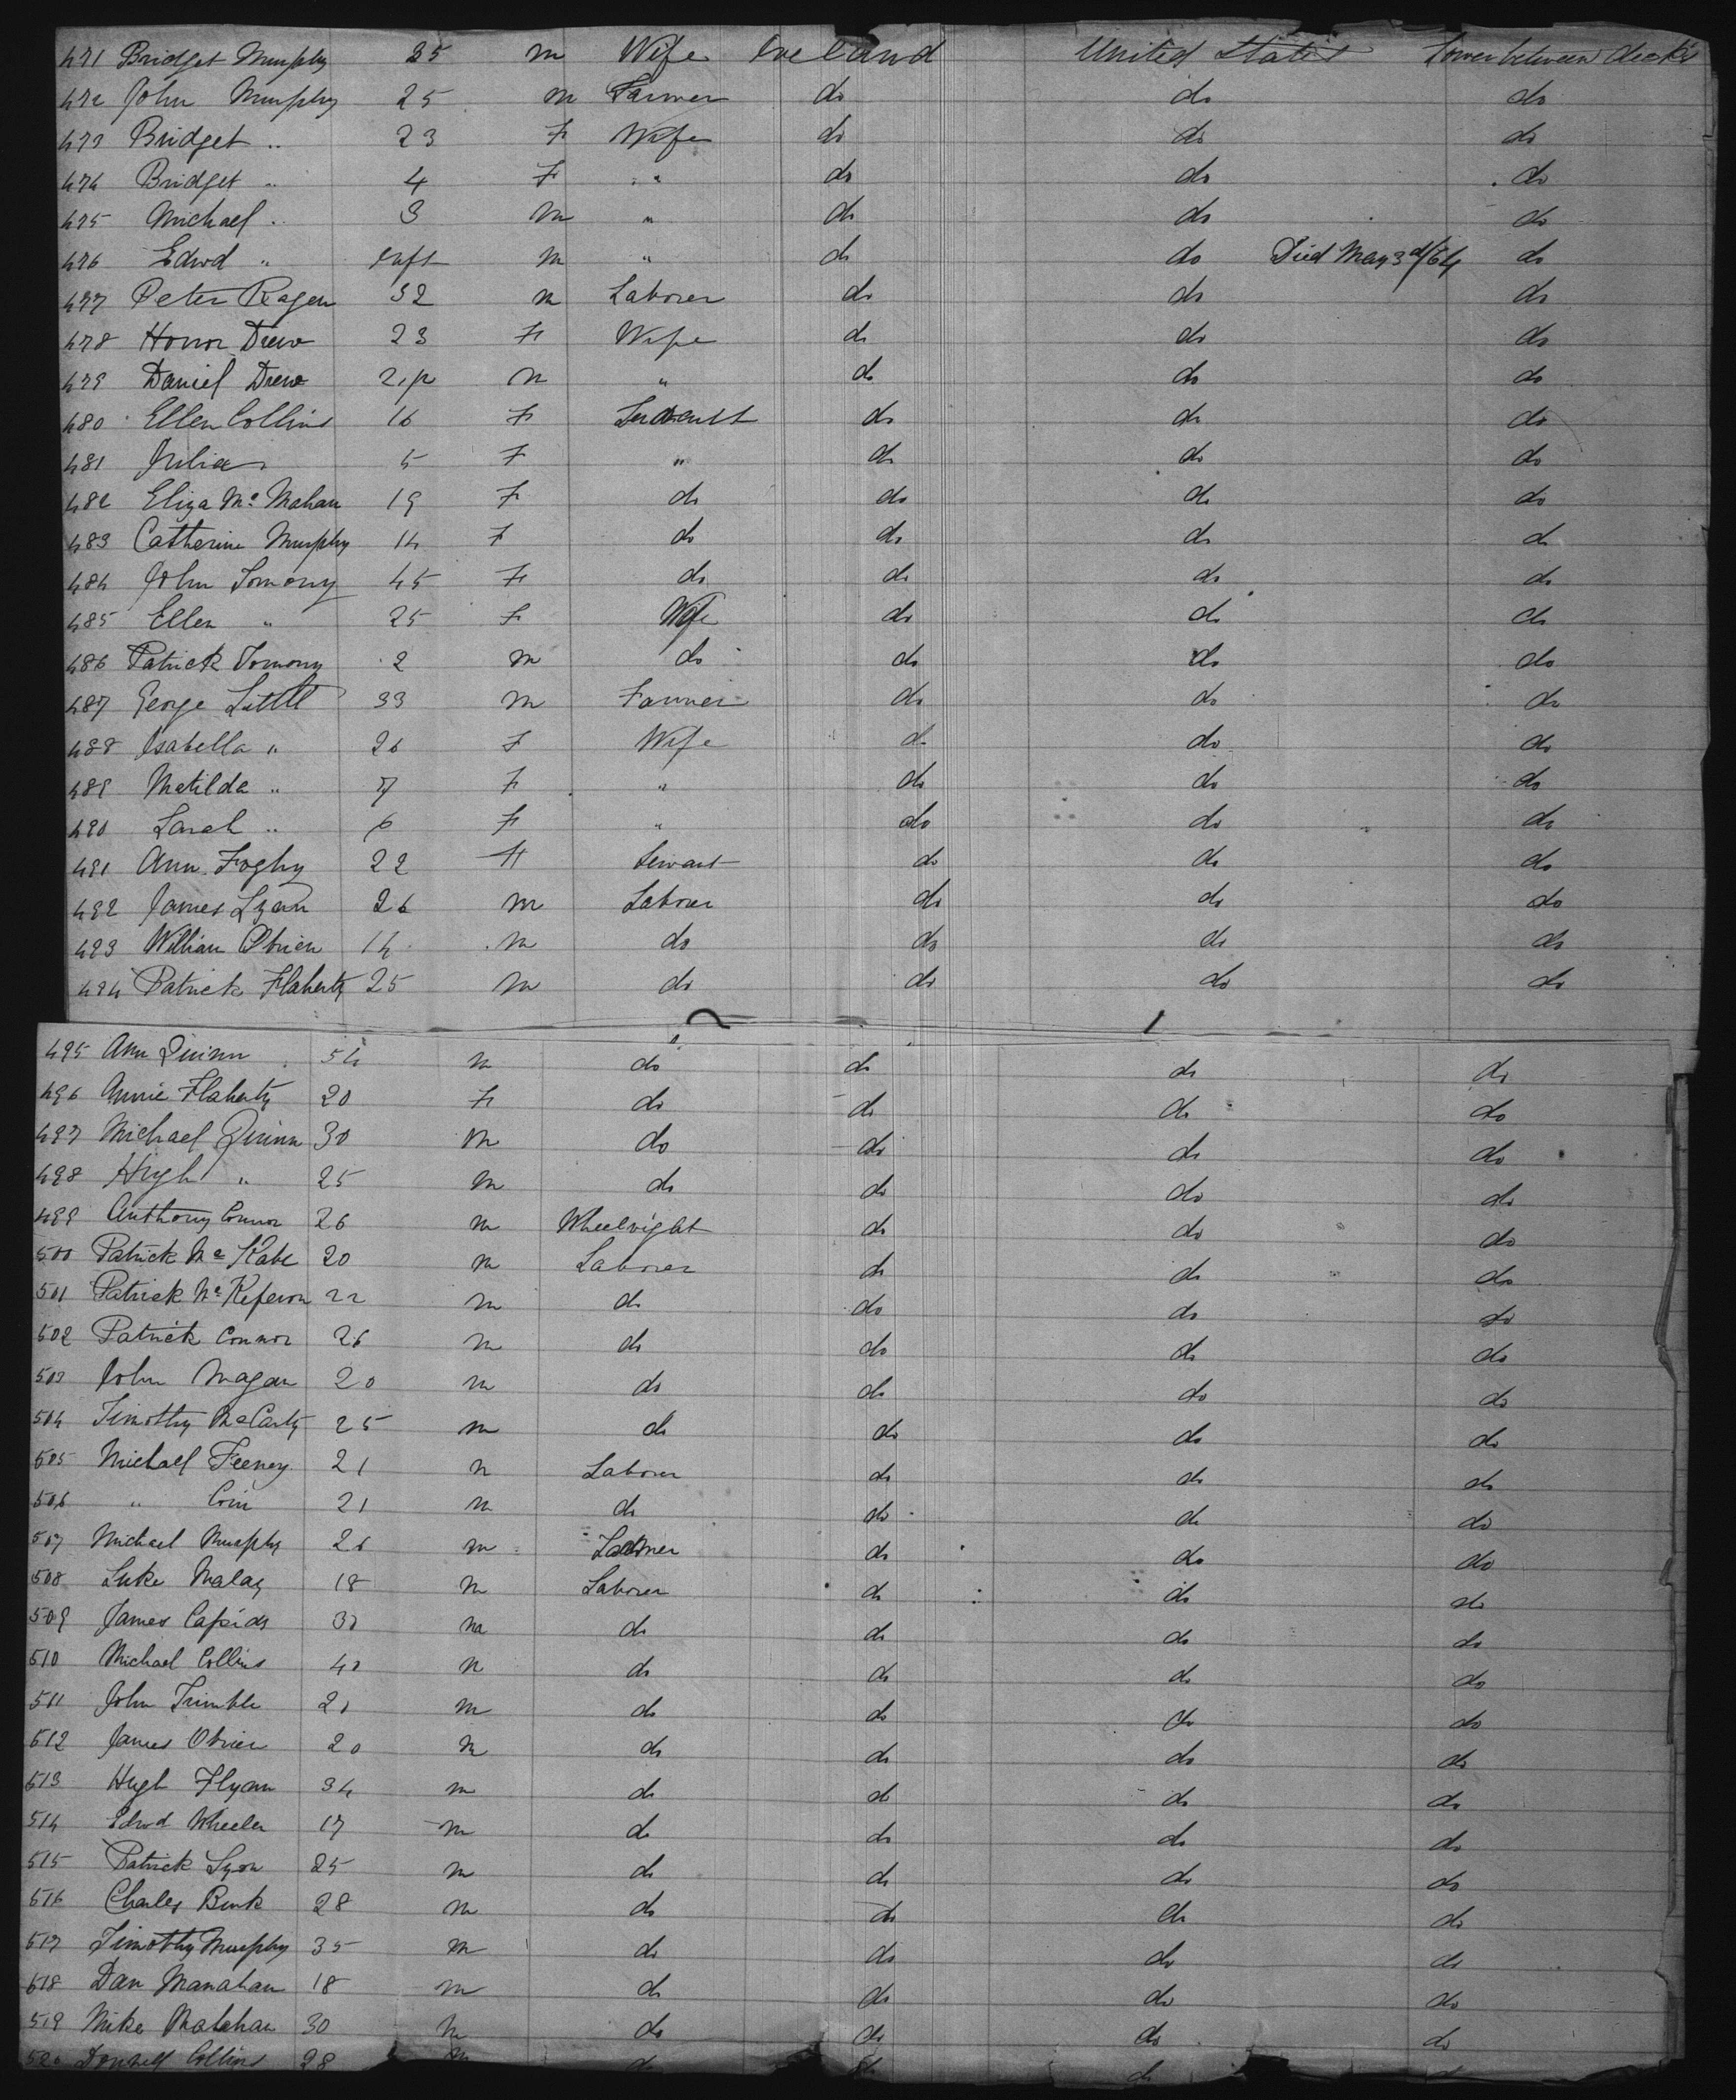 471 Bridget Murphy 25 m Wife Ireland United States Lower between decks
472 John Murphy 25 m Farmer do do do
473 Bridget " 23 F Wife do do do
474 Bridget " 4 F " do do do
475 Michael " 3 m " do do do
476 Edwd " Inft m " do do Died May 3d/64 do
477 Peter Ragen 32 m Laborer do do do
478 Honor Drew 23 F Wife do do do
479 Daniel Drew m " do do do
480 Ellen Collins 16 F do do do
481 Julia 5 F " do do do
482 Eliza Mc Mahan 19 F do do do do
483 Catherine Murphy 14 F do do do do
484 John Tomony 45 F do do do do
485 Ellen " 25 F Wife do do do
486 Patrick Tomony 2 m do do do do
487 George Little 33 m Farmer do do do
488 Isabella " 26 F Wife do do do
489 Matilda " 7 F " do do do
490 Sarah " 6 F " do do do
491 Ann Foghy 22 F Servant do do do
492 James Lyan 26 m Laborer do do do
493 William Obrien 14 m do do do do
494 Patrick Flaherty 25 m do do do do
495 Ann Quinn 54 m do do do do
496 Annie Flaherty 20 F do do do do
497 Michael Quinn 30 m do do do do
498 Hugh " 25 m do do do do
499 Anthony Connor 26 m Wheelright do do do
500 Patrick Mc Kabe 20 m Laborer do do do
501 Patrick Mc 22 m do do do do
502 Patrick Connor 26 m do do do do
503 John Magan 20 m do do do do
504 Timothy McCarty 25 m do do do do
505 Michael Feeney 21 m Laborer do do do
506 " 21 m do do do do
507 Michael Murphy 26 m do do do
508 Luke Malay 18 m Laborer do do do
509 James 30 m do do do do
510 Michael Collins 40 m do do do do
511 John Trimble 21 m do do do do
512 James Obrien 20 m do do do do
513 Hugh Flynn 34 m do do do do
514 Edwd Wheeler 17 m do do do do
515 Patrick Lyon 25 m do do do do
516 Charles Burk 28 m do do do do
517 Timothy Murphy 35 m do do do do
518 Dan Manahan 18 m do do do do
519 Mike 30 m do do do do
520 Collins 28 m do do do do